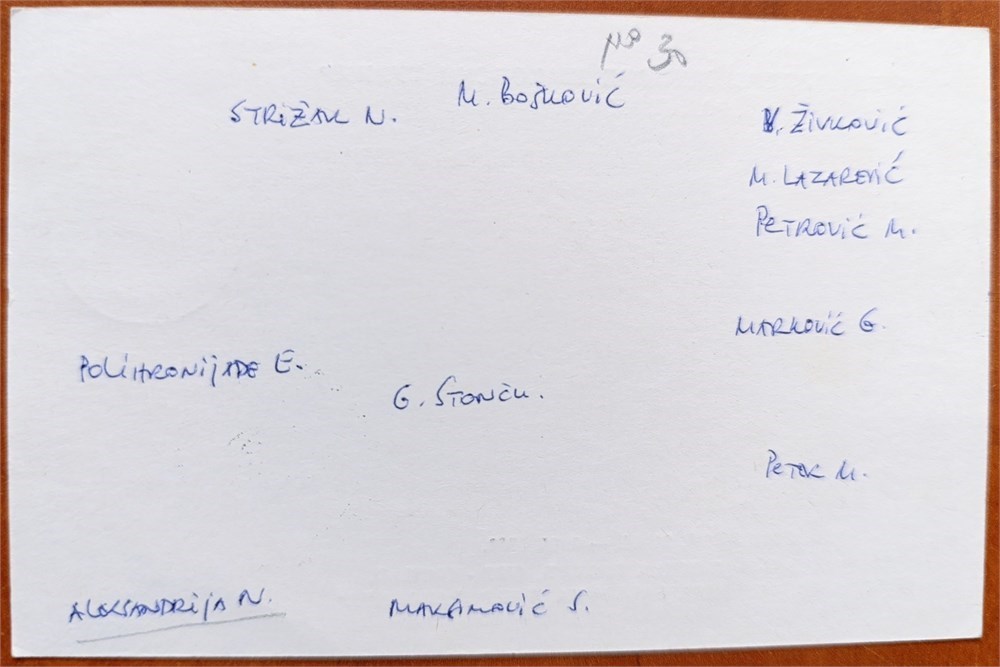 Nº 30
STRIŽAK N.
M. BOŠKOVIĆ
V. ŽIVKOVIĆ
M. LAZAREVIĆ
PETROVIĆ M.
MARKOVIĆ G.
POLIHRONIJADE E.
G. STONČU.
PETEK M.
ALEKSANDRIJA N.
MAKSIMOVIĆ S.